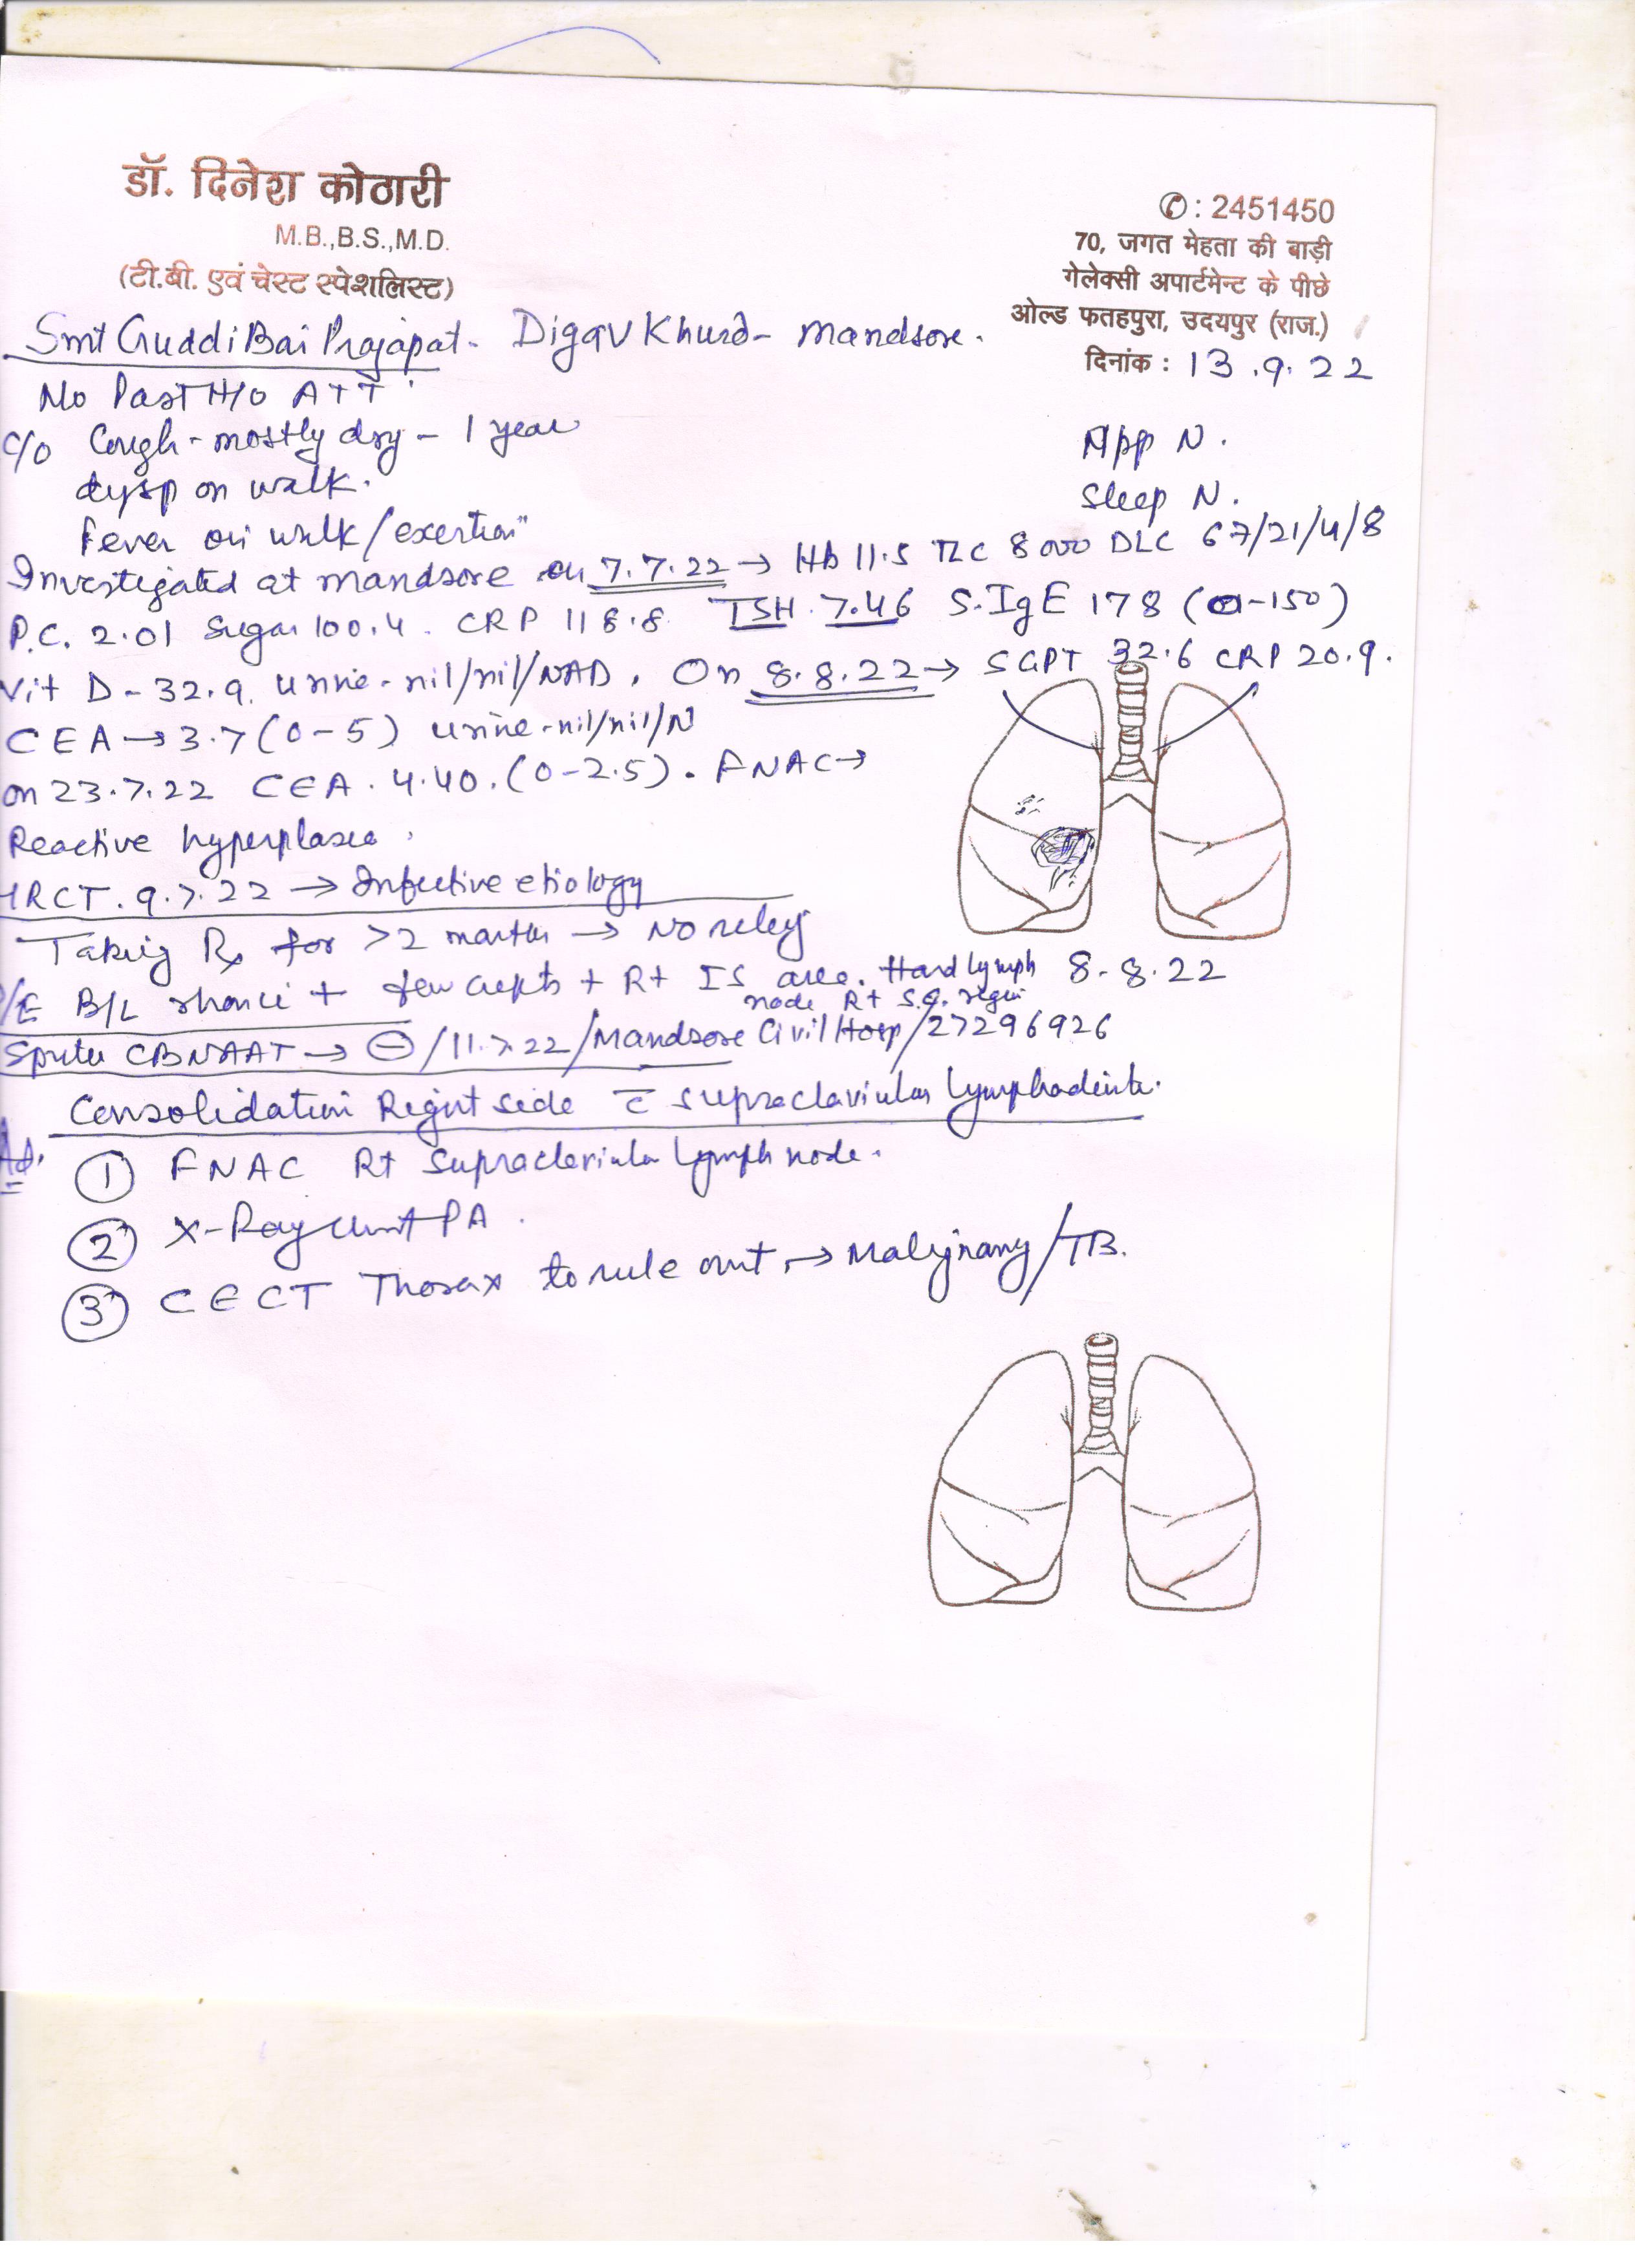 डॉ. दिनेश कोठारी
M.B.,B.S.,M.D.
(टी.बी. एवं चेस्ट स्पेशलिस्ट)
✆ : 2451450
70, जगत मेहता की बाड़ी
गेलेक्सी अपार्टमेन्ट के पीछे
ओल्ड फतहपुरा, उदयपुर (राज.)
दिनांक : 13.9.22
Smt Guddi Bai Prajapat - Digav Khurd - Mandsore.
No Past H/o ATT
C/o Cough - mostly dry - 1 year
App N.
dysp on walk.
Sleep N.
Fever on walk/exertion
Investigated at mandsore on 7.7.22 → Hb 11.5 TLC 8000 DLC 67/21/4/8
P.C. 2.01 Sugar 100.4. CRP 118.8 TSH 7.46 S.IgE 178 (0-150)
Vit D - 32.9. urine - nil/nil/NAD. On 8.8.22 → SGPT 32.6 CRP 20.9.
CEA → 3.7 (0-5) urine - nil/nil/N
on 23.7.22 CEA. 4.40. (0-2.5). FNAC →
Reactive hyperplasia.
HRCT. 9.7.22 → Infective etiology
Taking Rx for >2 months → No relief
/E B/L rhonci + few crepts + Rt IS area. Hard lymph node Rt S.C. region
8.8.22
Sputu CBNAAT → ⊖/11.7.22/Mandsore Civil Hosp/27296926
Consolidation Right side c̄ supraclavicular lymphadenitis.
Ad.
① FNAC Rt Supraclavicular lymph node.
② X-Ray Chest PA.
③ CECT Thorax to rule out → Malignancy/TB.